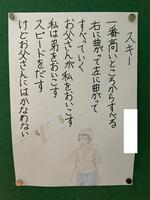 スキー
一番高いところからすべる
右に曲がって左に曲がって
すべっていく
お父さんが私をおいこす
私は弟をおいこす
スピードをだす
けどお父さんにはかなわない